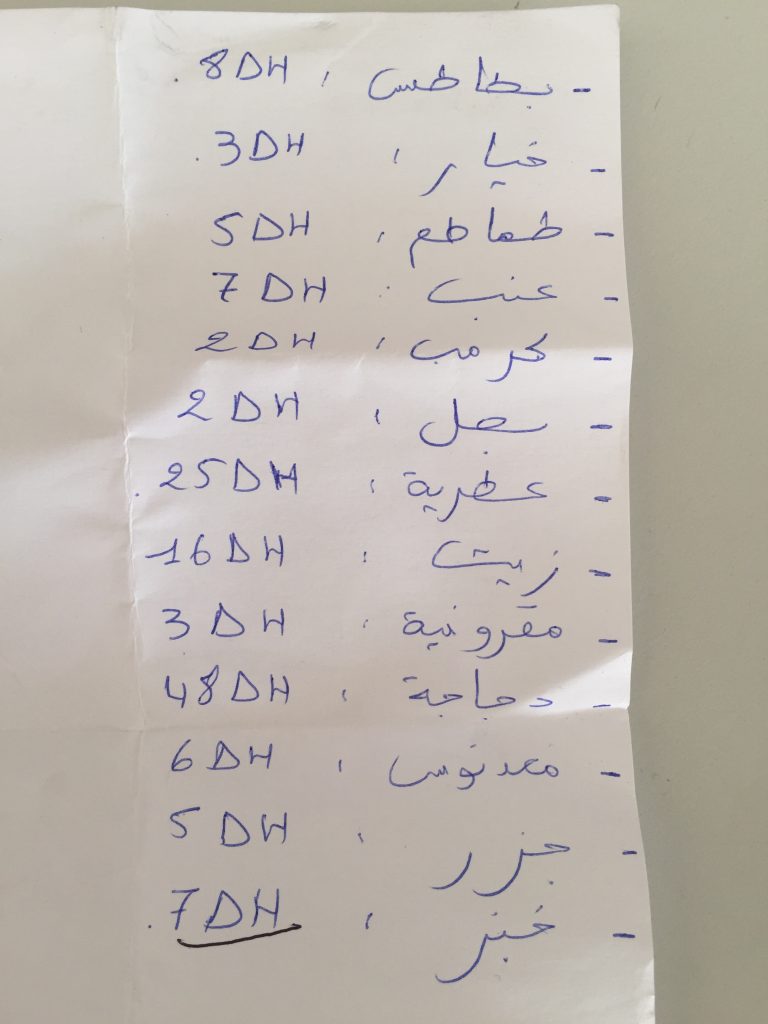 - بطاطس : 8DH.
- خيار : 3DH.
- طماطم : 5DH
- عنب : 7DH
- كرمب : 2DH
- بصل : 2DH
- عطرية : 25DH.
- زيت : 16DH
- مقرونية : 3DH
- دجاجة : 48DH
- معدنوس : 6DH
- جزر : 5DH
- خبز : 7DH.